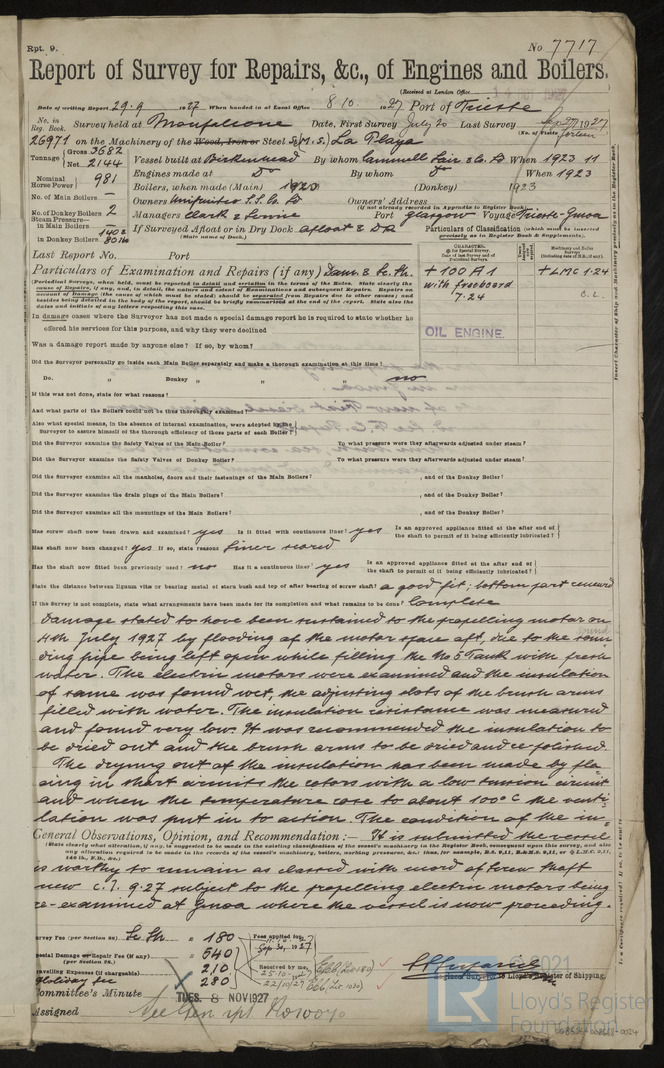 Rpt. 9.
No 7717
Report of Survey for Repairs, &c., of Engines and Boilers.
(Received at London Office
Date of writing Report 29.9 1927 When handed in at Local Office 8.10.1927 Port of Trieste
No. in Reg. Book. Survey held at Monfalcone Date, First Survey July 20 Last Survey Sep 27 1927
(No. of Visits fourteen
26971 on the Machinery of the Wood, Iron or Steel S.S. (M.S.) La Playa
Tonnage Gross 3682 Net 2144
Vessel built at Birkenhead By whom Cammell Laird & Co. Ld When 1923 11
Nominal Horse Power 981
Engines made at Do By whom Do When 1923
Boilers, when made (Main) 1923 (Donkey) 1923
No. of Main Boilers —
Owners Unifruitco S.S. Co. Ld Owners' Address
(if not already recorded in Appendix to Register Book.)
No. of Donkey Boilers 2
Managers Clark & Service Port Glasgow Voyage Trieste-Genoa
Steam Pressure— in Main Boilers
in Donkey Boilers 80 lbs
If Surveyed Afloat or in Dry Dock afloat & DD
(State name of Dock.)
Particulars of Classification (which must be inserted precisely as in Register Book & Supplements).
Last Report No. Port
Particulars of Examination and Repairs (if any) Dam. & Sc. Sh.
+ 100 A 1
with freeboard
7.24
+ LMC 1.24
OIL ENGINE.
In damage cases where the Surveyor has not made a special damage report he is required to state whether he
offered his services for this purpose, and why they were declined
Was a damage report made by anyone else? If so, by whom?
Did the Surveyor personally go inside each Main Boiler separately and make a thorough examination at this time?
Do. „ Donkey „ „ „ no
If this was not done, state for what reasons?
And what parts of the Boilers could not be thus thoroughly examined?
Also what special means, in the absence of internal examination, were adopted by the
Surveyor to assure himself of the thorough efficiency of those parts of each Boiler?
Did the Surveyor examine the Safety Valves of the Main Boiler? To what pressure were they afterwards adjusted under steam?
Did the Surveyor examine the Safety Valves of Donkey Boiler? To what pressure were they afterwards adjusted under steam?
Did the Surveyor examine all the manholes, doors and their fastenings of the Main Boilers? , and of the Donkey Boiler?
Did the Surveyor examine the drain plugs of the Main Boilers? , and of the Donkey Boiler?
Did the Surveyor examine all the mountings of the Main Boilers? , and of the Donkey Boiler?
Has screw shaft now been drawn and examined? yes Is it fitted with continuous liner? yes Is an approved appliance fitted at the after end of the shaft to permit of it being efficiently lubricated?
Has shaft now been changed? yes If so, state reasons liner scored
Has the shaft now fitted been previously used? no Has it a continuous liner? yes Is an approved appliance fitted at the after end of the shaft to permit of it being efficiently lubricated?
State the distance between lignum vitæ or bearing metal of stern bush and top of after bearing of screw shaft? a good fit; bottom part renewed
If the Survey is not complete, state what arrangements have been made for its completion and what remains to be done? Complete
Damage stated to have been sustained to the propelling motor on
4th July 1927 by flooding of the motor space aft, due to the soun
ding pipe being left open while filling the No 5 Tank with fresh
water. The electric motors were examined and the insulation
of same was found wet, the adjusting slots of the brush arms
filled with water. The insulation resistance was measured
and found very low. It was recommended the insulation to
be dried out and the brush arms to be dried and re-polished.
The drying out of the insulation has been made by pla
cing in short circuits the rotors with a low tension circuit
and when the temperature rose to about 100° C the venti-
lation was put in to action. The condition of the in-
General Observations, Opinion, and Recommendation :— It is submitted the vessel
is worthy to remain as classed with record of screw shaft
new C.L. 9.27 subject to the propelling electric motors being
re-examined at Genoa where the vessel is now proceeding.
Survey Fee (per Section 28) Sc. Sh. £ 180
Special Damage or Repair Fee (if any) (per Section 28.) £ 540
Travelling Expenses (if chargeable) £ 210
Holiday fee 280
Fees applied for, Sep. 30, 1927
Received by me,
Surveyor to Lloyd's Register of Shipping.
Committee's Minute TUES. 8 NOV 1927
Assigned See Gen rpt No 10070
© 2021
Lloyd's Register
Foundation